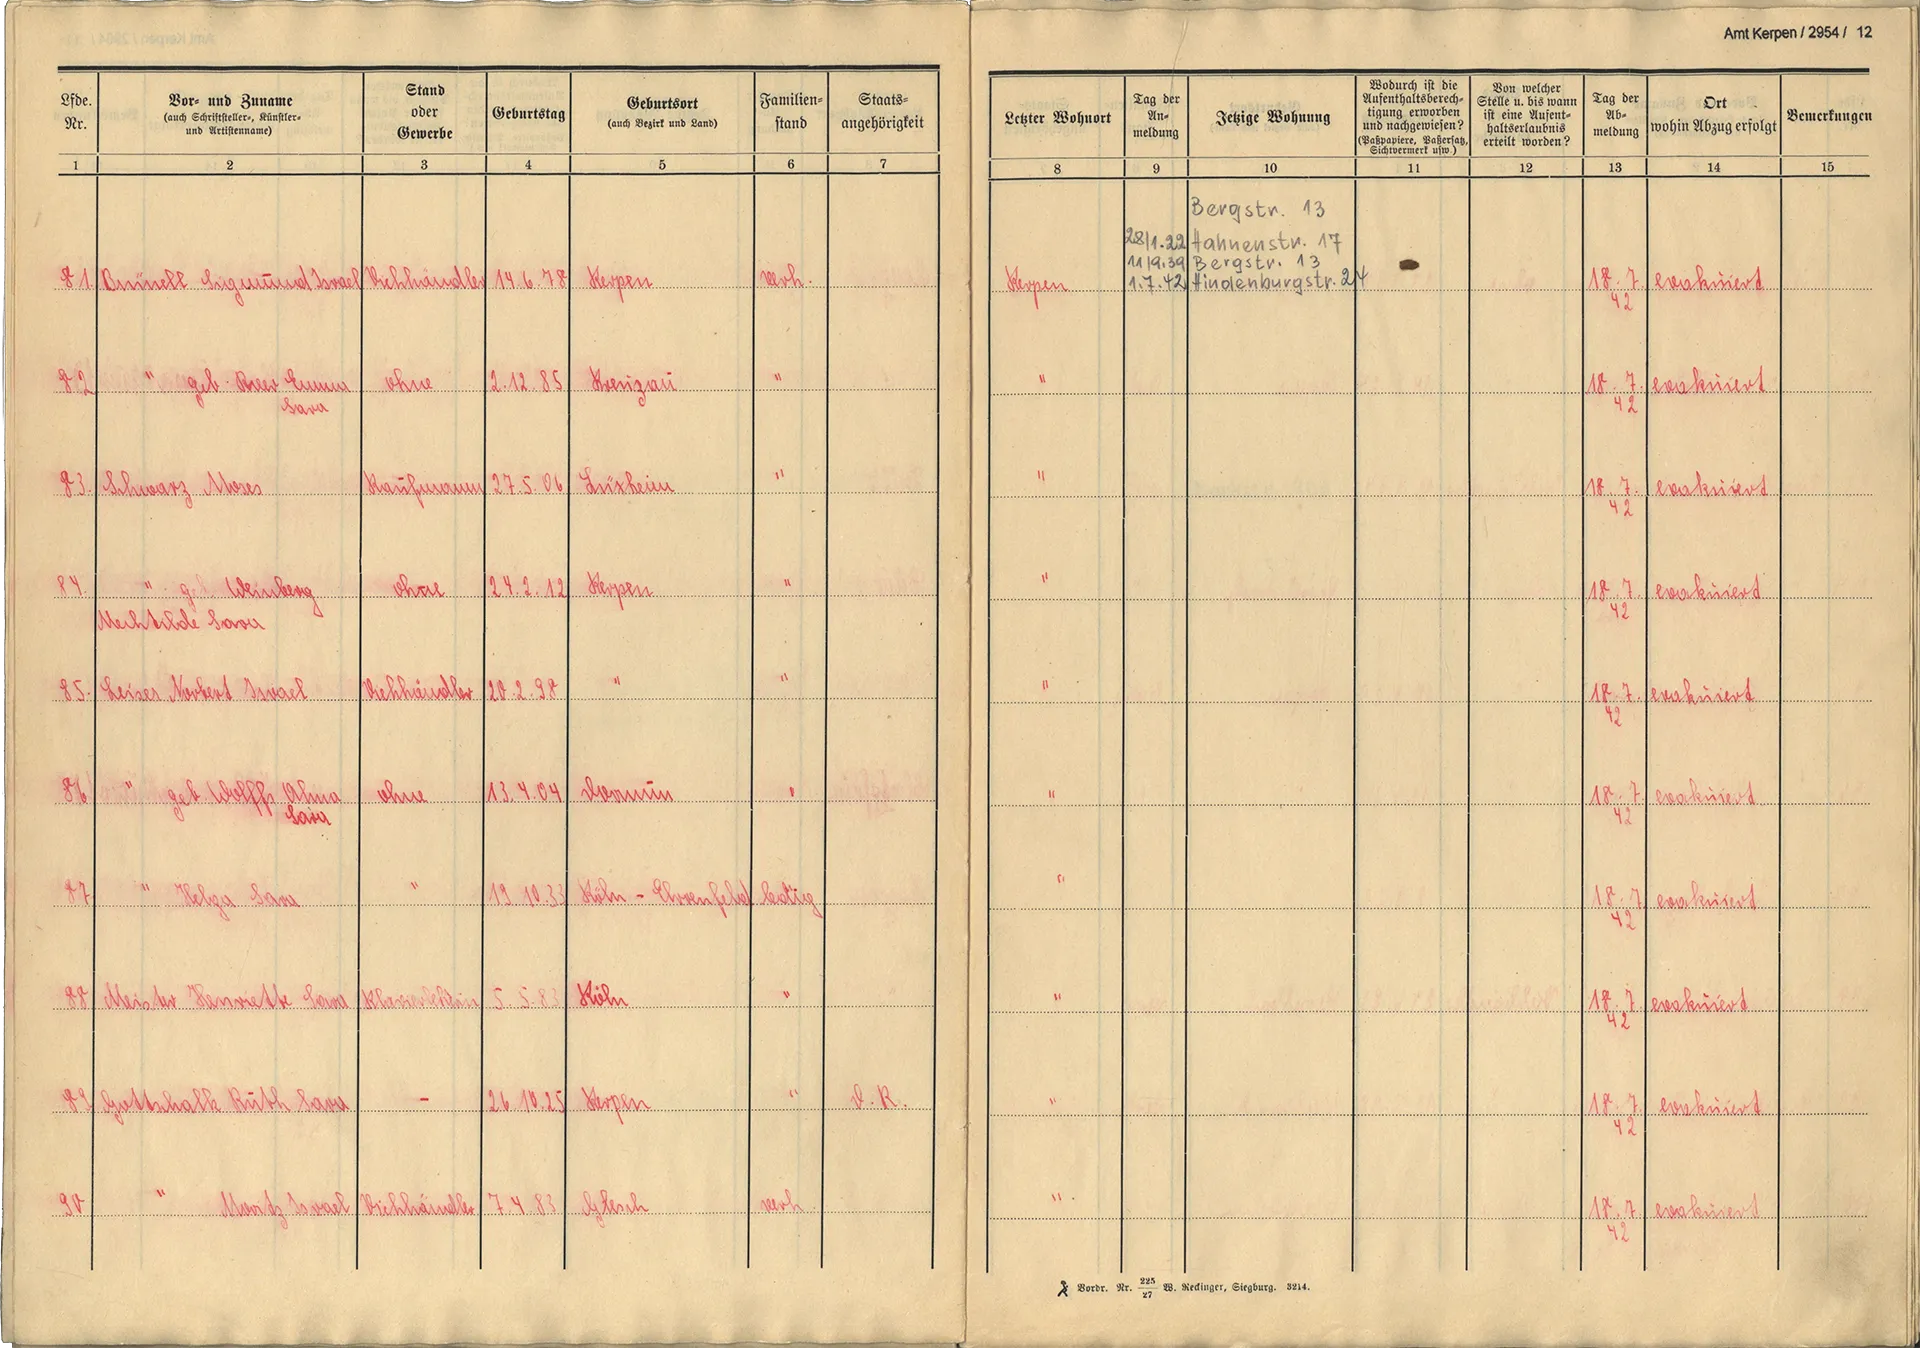 Amt Kerpen / 2954 / 12
Lfde. Nr.
Vor- und Zuname
(auch Schriftsteller-, Künstler-
und Artistenname)
Stand
oder
Gewerbe
Geburtstag
Geburtsort
(auch Bezirk und Land)
Familien-
stand
Staats-
angehörigkeit
Letzter Wohnort
Tag der
An-
meldung
Jetzige Wohnung
Wodurch ist die
Aufenthaltsberech-
tigung erworben
und nachgewiesen?
(Paßpapiere, Paßersatz,
Sichtvermerk usw.)
Von welcher
Stelle u. bis wann
ist eine Aufent-
haltserlaubnis
erteilt worden?
Tag der
Ab-
meldung
Ort
wohin Abzug erfolgt
Bemerkungen
1 2 3 4 5 6 7 8 9 10 11 12 13 14 15
Bergstr. 13
28/1.22 Hahnenstr. 17
11/9.39 Bergstr. 13
1.7.42 Hindenburgstr. 24
81. Sigmund Israel Viehhändler 14.6.78 Kerpen verh. Kerpen 18.7. evakuiert
42
82 " geb. Emma ohne 2.12.85 Kreuzau " " 18.7. evakuiert
Sara 42
83. Schwarz Moses Kaufmann 27.5.06 Lüxheim " " 18.7. evakuiert
42
84. " geb Weinberg ohne 24.2.12 Kerpen " " 18.7. evakuiert
Mechtilde Sara 42
85. Leiser Norbert Israel Viehhändler 20.2.98 " " " 18.7. evakuiert
42
86 " geb Wolffs Alma ohne 13.4.04 Dornum " " 18.7. evakuiert
Sara 42
87 " Helga Sara " 19 10.33 Köln - Ehrenfeld ledig " 18.7 evakuiert
42
88 Meister Henriette Sara Klavierlehrerin 5.5.83 Köln " " 18.7. evakuiert
42
89 Gottschalk Ruth Sara - 26 10.25 Kerpen " D.R. " 18.7. evakuiert
42
90 " Moritz Israel Viehhändler 7.4.83 Glesch verh. " 18.7. evakuiert
42
Vordr. Nr. 225/27 W. Reckinger, Siegburg. 3214.